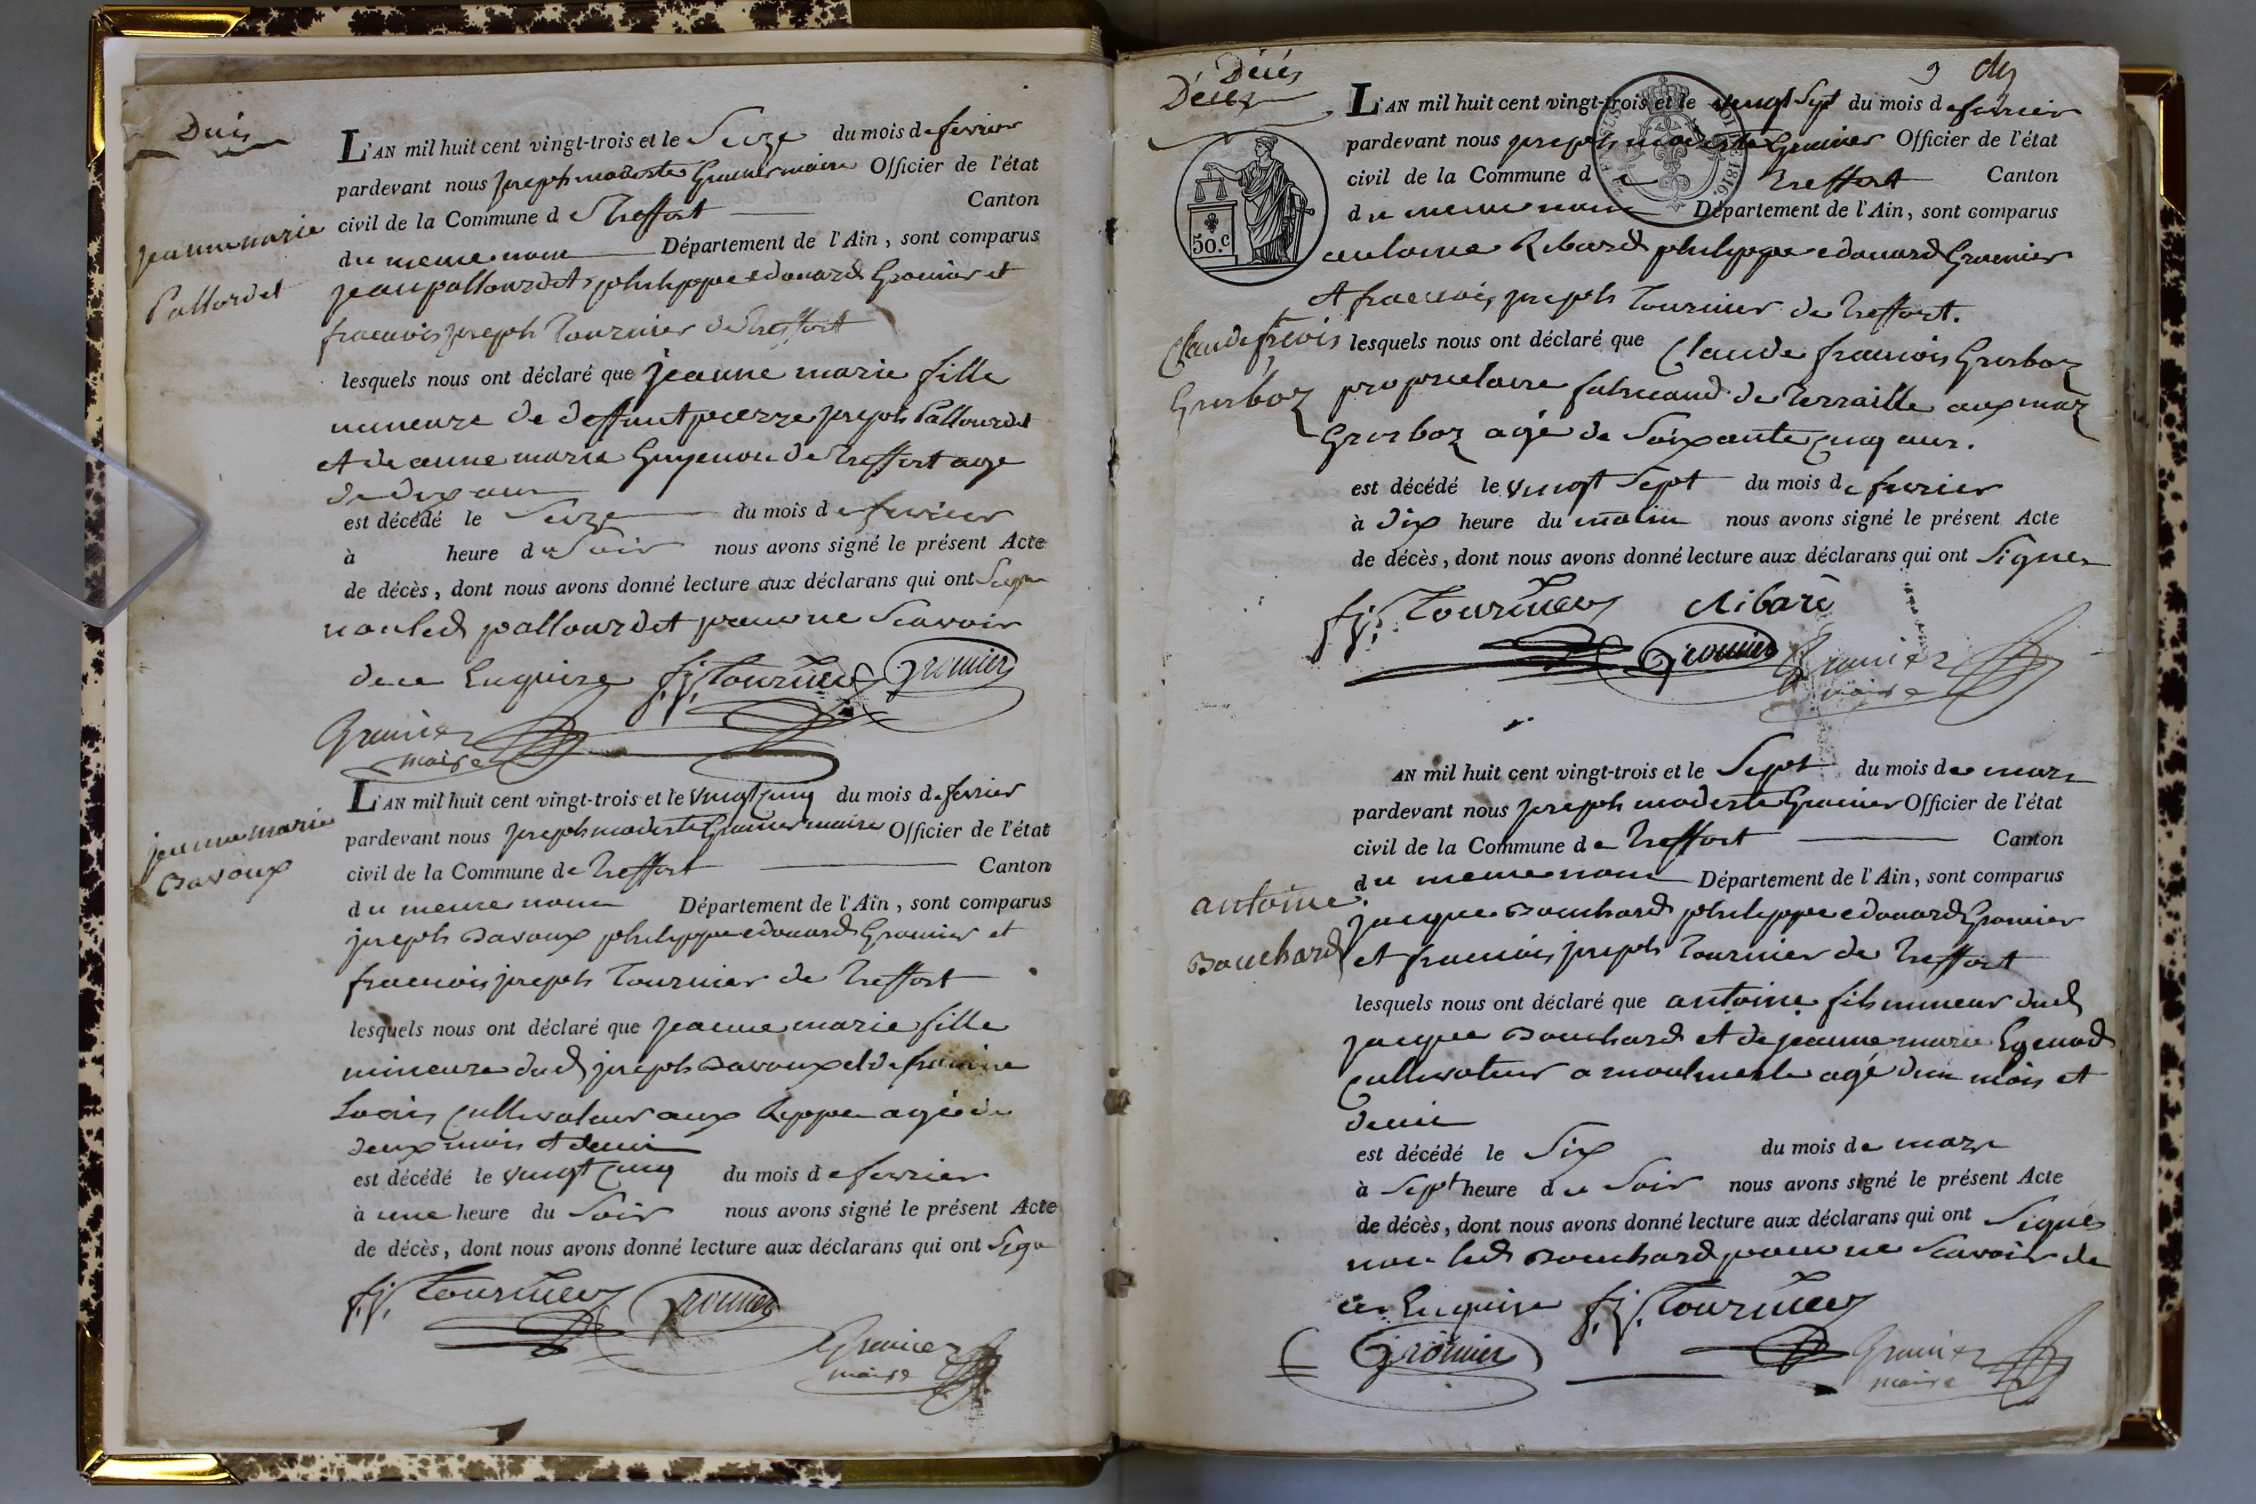 Décès
L'AN mil huit cent vingt-trois et le Seize du mois de fevrier
pardevant nous joseph modeste Gromier maire Officier de l'état
civil de la Commune de Treffort Canton
du meme nom Département de l'Ain, sont comparus
jean pallourdet, philippe edouard Gromier et
francois joseph Tournier de Treffort
jeanne marie
Pallordet
lesquels nous ont déclaré que jeanne marie fille
mineure de deffunt pierre joseph Pallourdet
et de anne marie Guyenon de Treffort age
de dix ans
est décédé le Seize du mois de fevrier
à heure du Soir nous avons signé le présent Acte
de décès, dont nous avons donné lecture aux déclarans qui ont Signe
non led pallourdet pour ne Scavoir
de ce Enquire f. j. Tournier Gromier
Gromier
maire
L'AN mil huit cent vingt-trois et le vingt cinq du mois de fevrier
pardevant nous joseph modeste Gromier maire Officier de l'état
civil de la Commune de Treffort Canton
du meme nom Département de l'Ain, sont comparus
joseph Davoux philippe edouard Gromier et
francois joseph Tournier de Treffort
jeanne marie
Davoux
lesquels nous ont déclaré que jeanne marie fille
mineure dud joseph Davoux et de francoise
Louis cultivateur aux agée de
deux mois et demi
est décédé le vingt cinq du mois de fevrier
à une heure du Soir nous avons signé le présent Acte
de décès, dont nous avons donné lecture aux déclarans qui ont Signe
f. j. Tournier Gromier
Gromier
maire
9
Décès
Décès
L'AN mil huit cent vingt-trois et le vingt Sept du mois de fevrier
pardevant nous joseph modeste Gromier Officier de l'état
civil de la Commune de Treffort Canton
du meme nom Département de l'Ain, sont comparus
50.c
antoine Ribard philippe edouard Gromier
et francois joseph Tournier de Treffort.
Claude fcois
Grosboz
lesquels nous ont déclaré que Claude francois Grosboz
proprietaire fabricand de Terraille aux maz
Grosboz agé de Soixante cinq ans.
est décédé le vingt Sept du mois de fevrier
à dix heure du matin nous avons signé le présent Acte
de décès, dont nous avons donné lecture aux déclarans qui ont Signer
f. j. Tournier Ribard
Gromier Gromier
maire
AN mil huit cent vingt-trois et le Sept du mois de mars
pardevant nous joseph modeste Gromier Officier de l'état
civil de la Commune de Treffort Canton
du meme nom Département de l'Ain, sont comparus
jacque Bouchard philippe edouard Gromier
et francois joseph Tournier de Treffort
antoine
Bouchard
lesquels nous ont déclaré que antoine fils mineur dud
jacque Bouchard et de jeanne marie
cultivateur a agé dun mois et
demi
est décédé le Six du mois de mars
à Sept heure du Soir nous avons signé le présent Acte
de décès, dont nous avons donné lecture aux déclarans qui ont Signés
non led Bouchard pour ne Scavoir de
ce Enquire f. j. Tournier
Gromier Gromier
maire